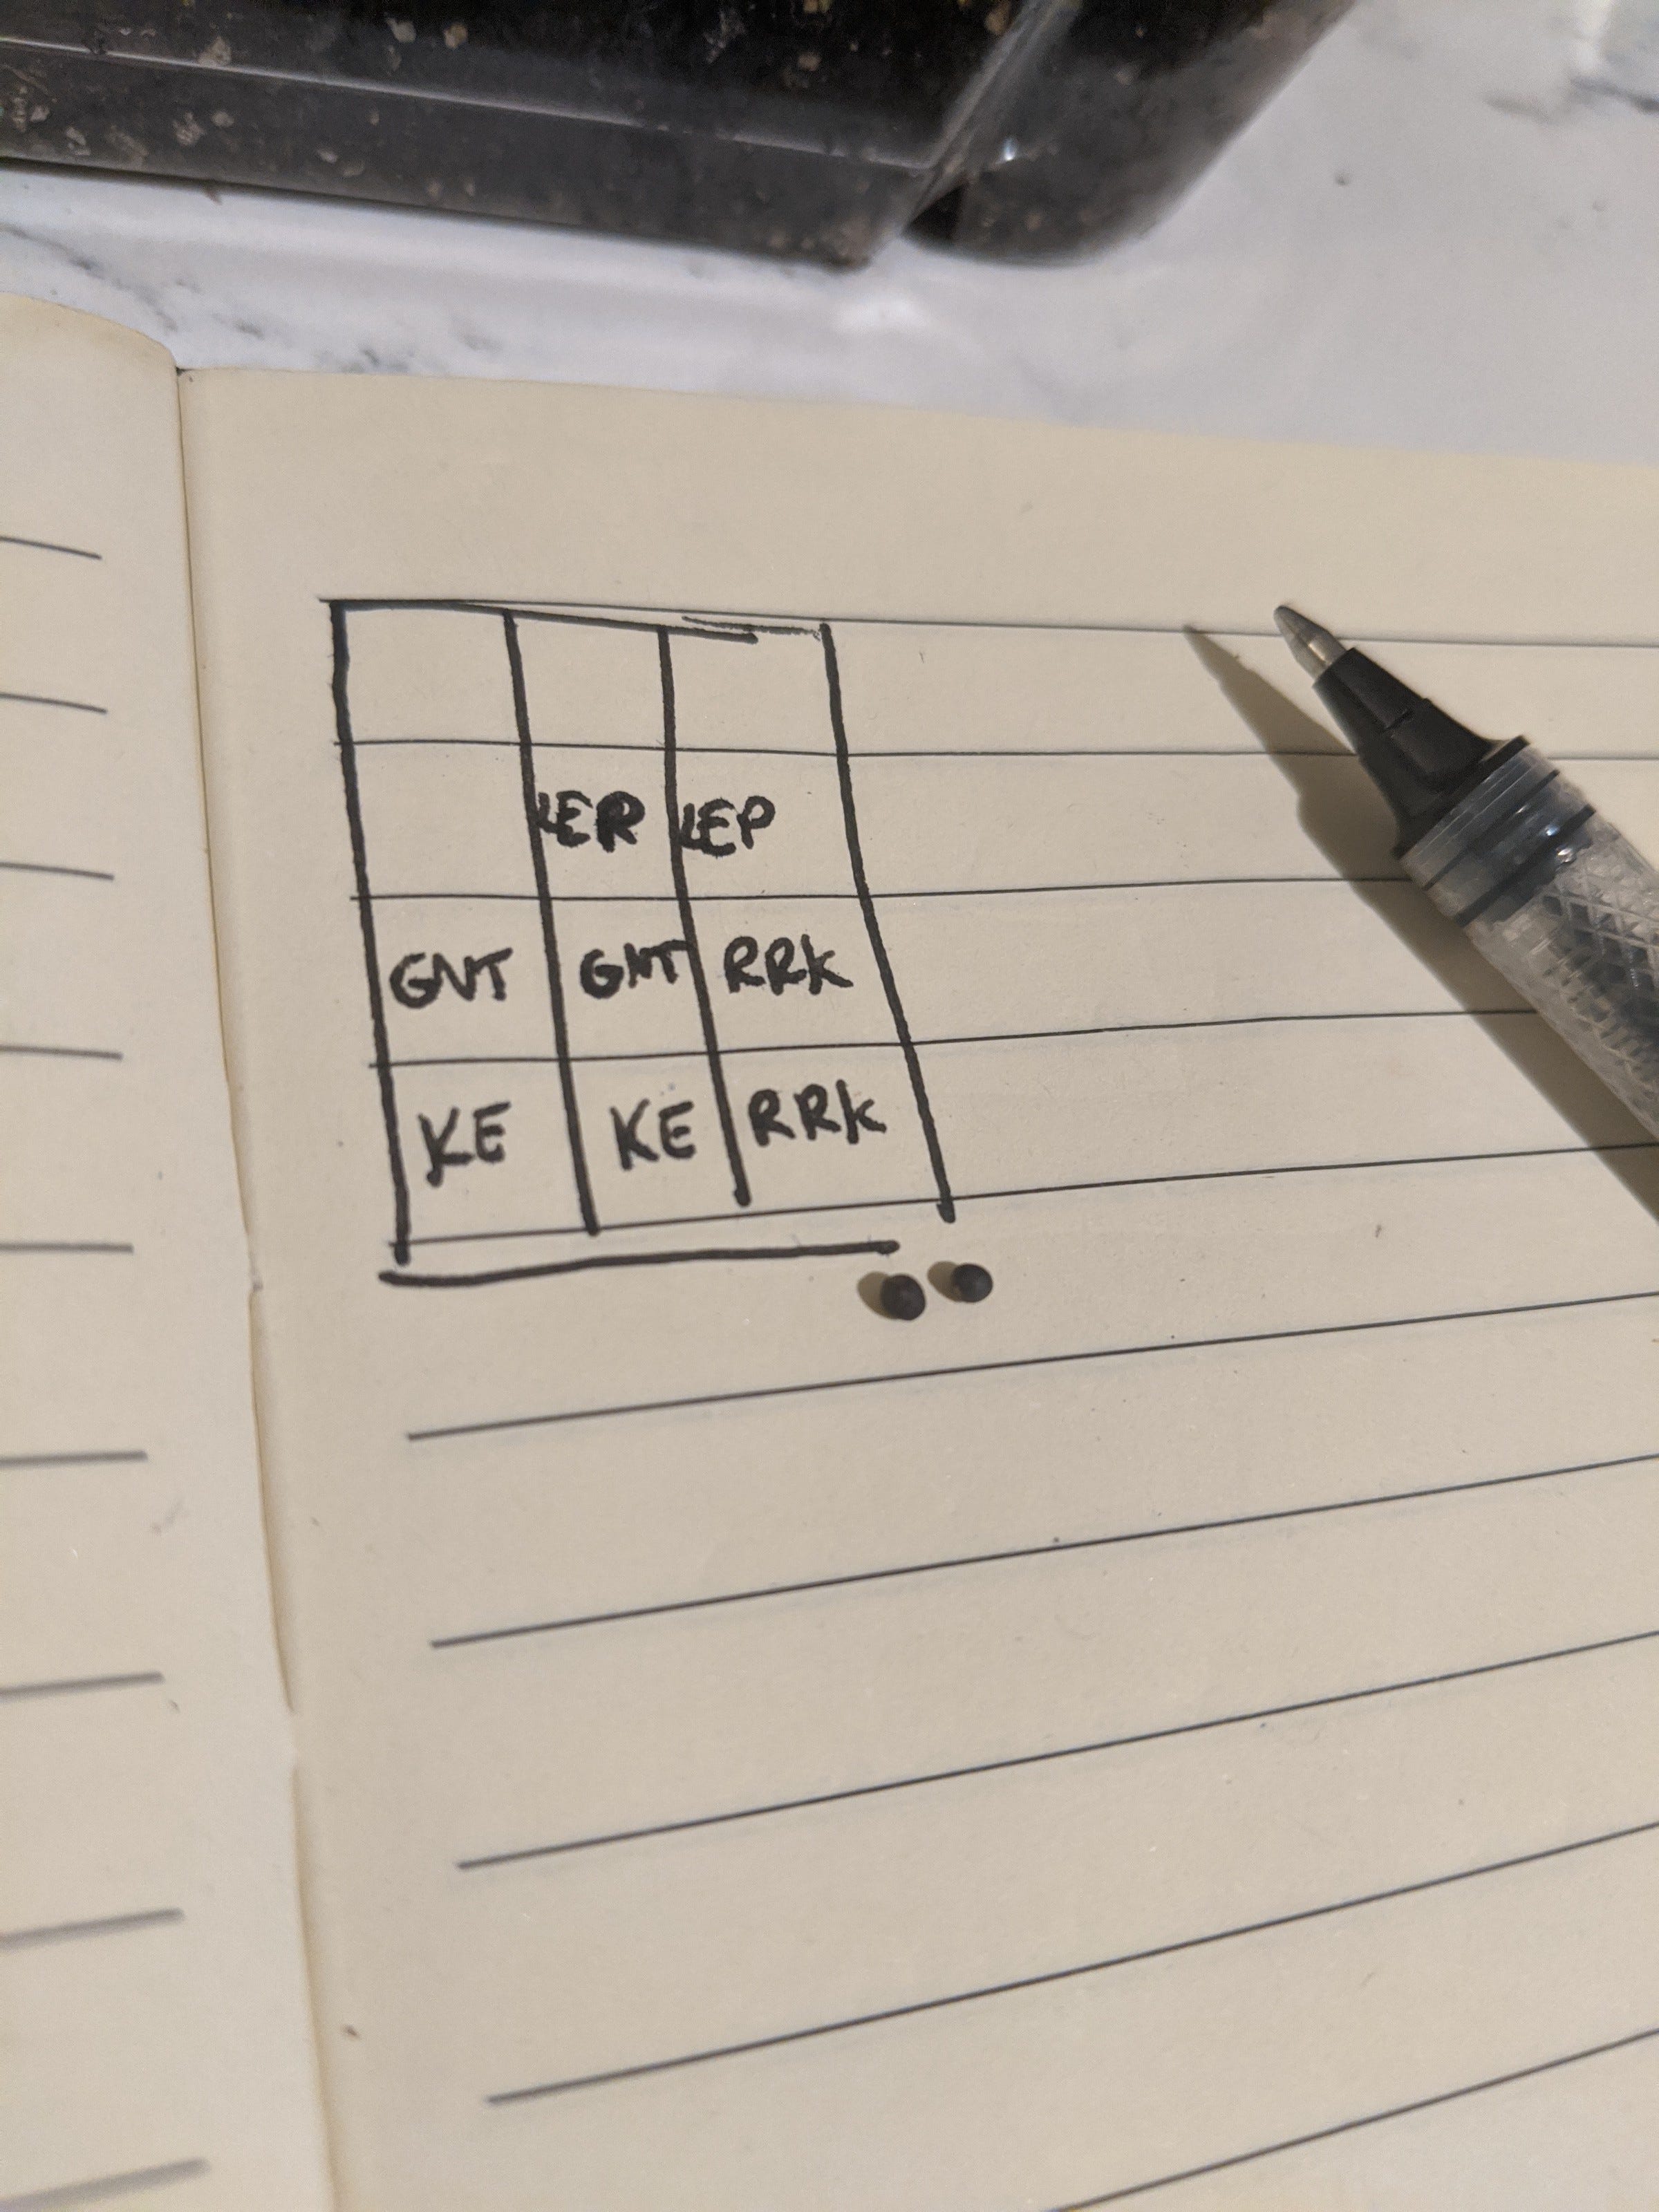 LEP LEP
GNT GNT RRK
KE KE RRK